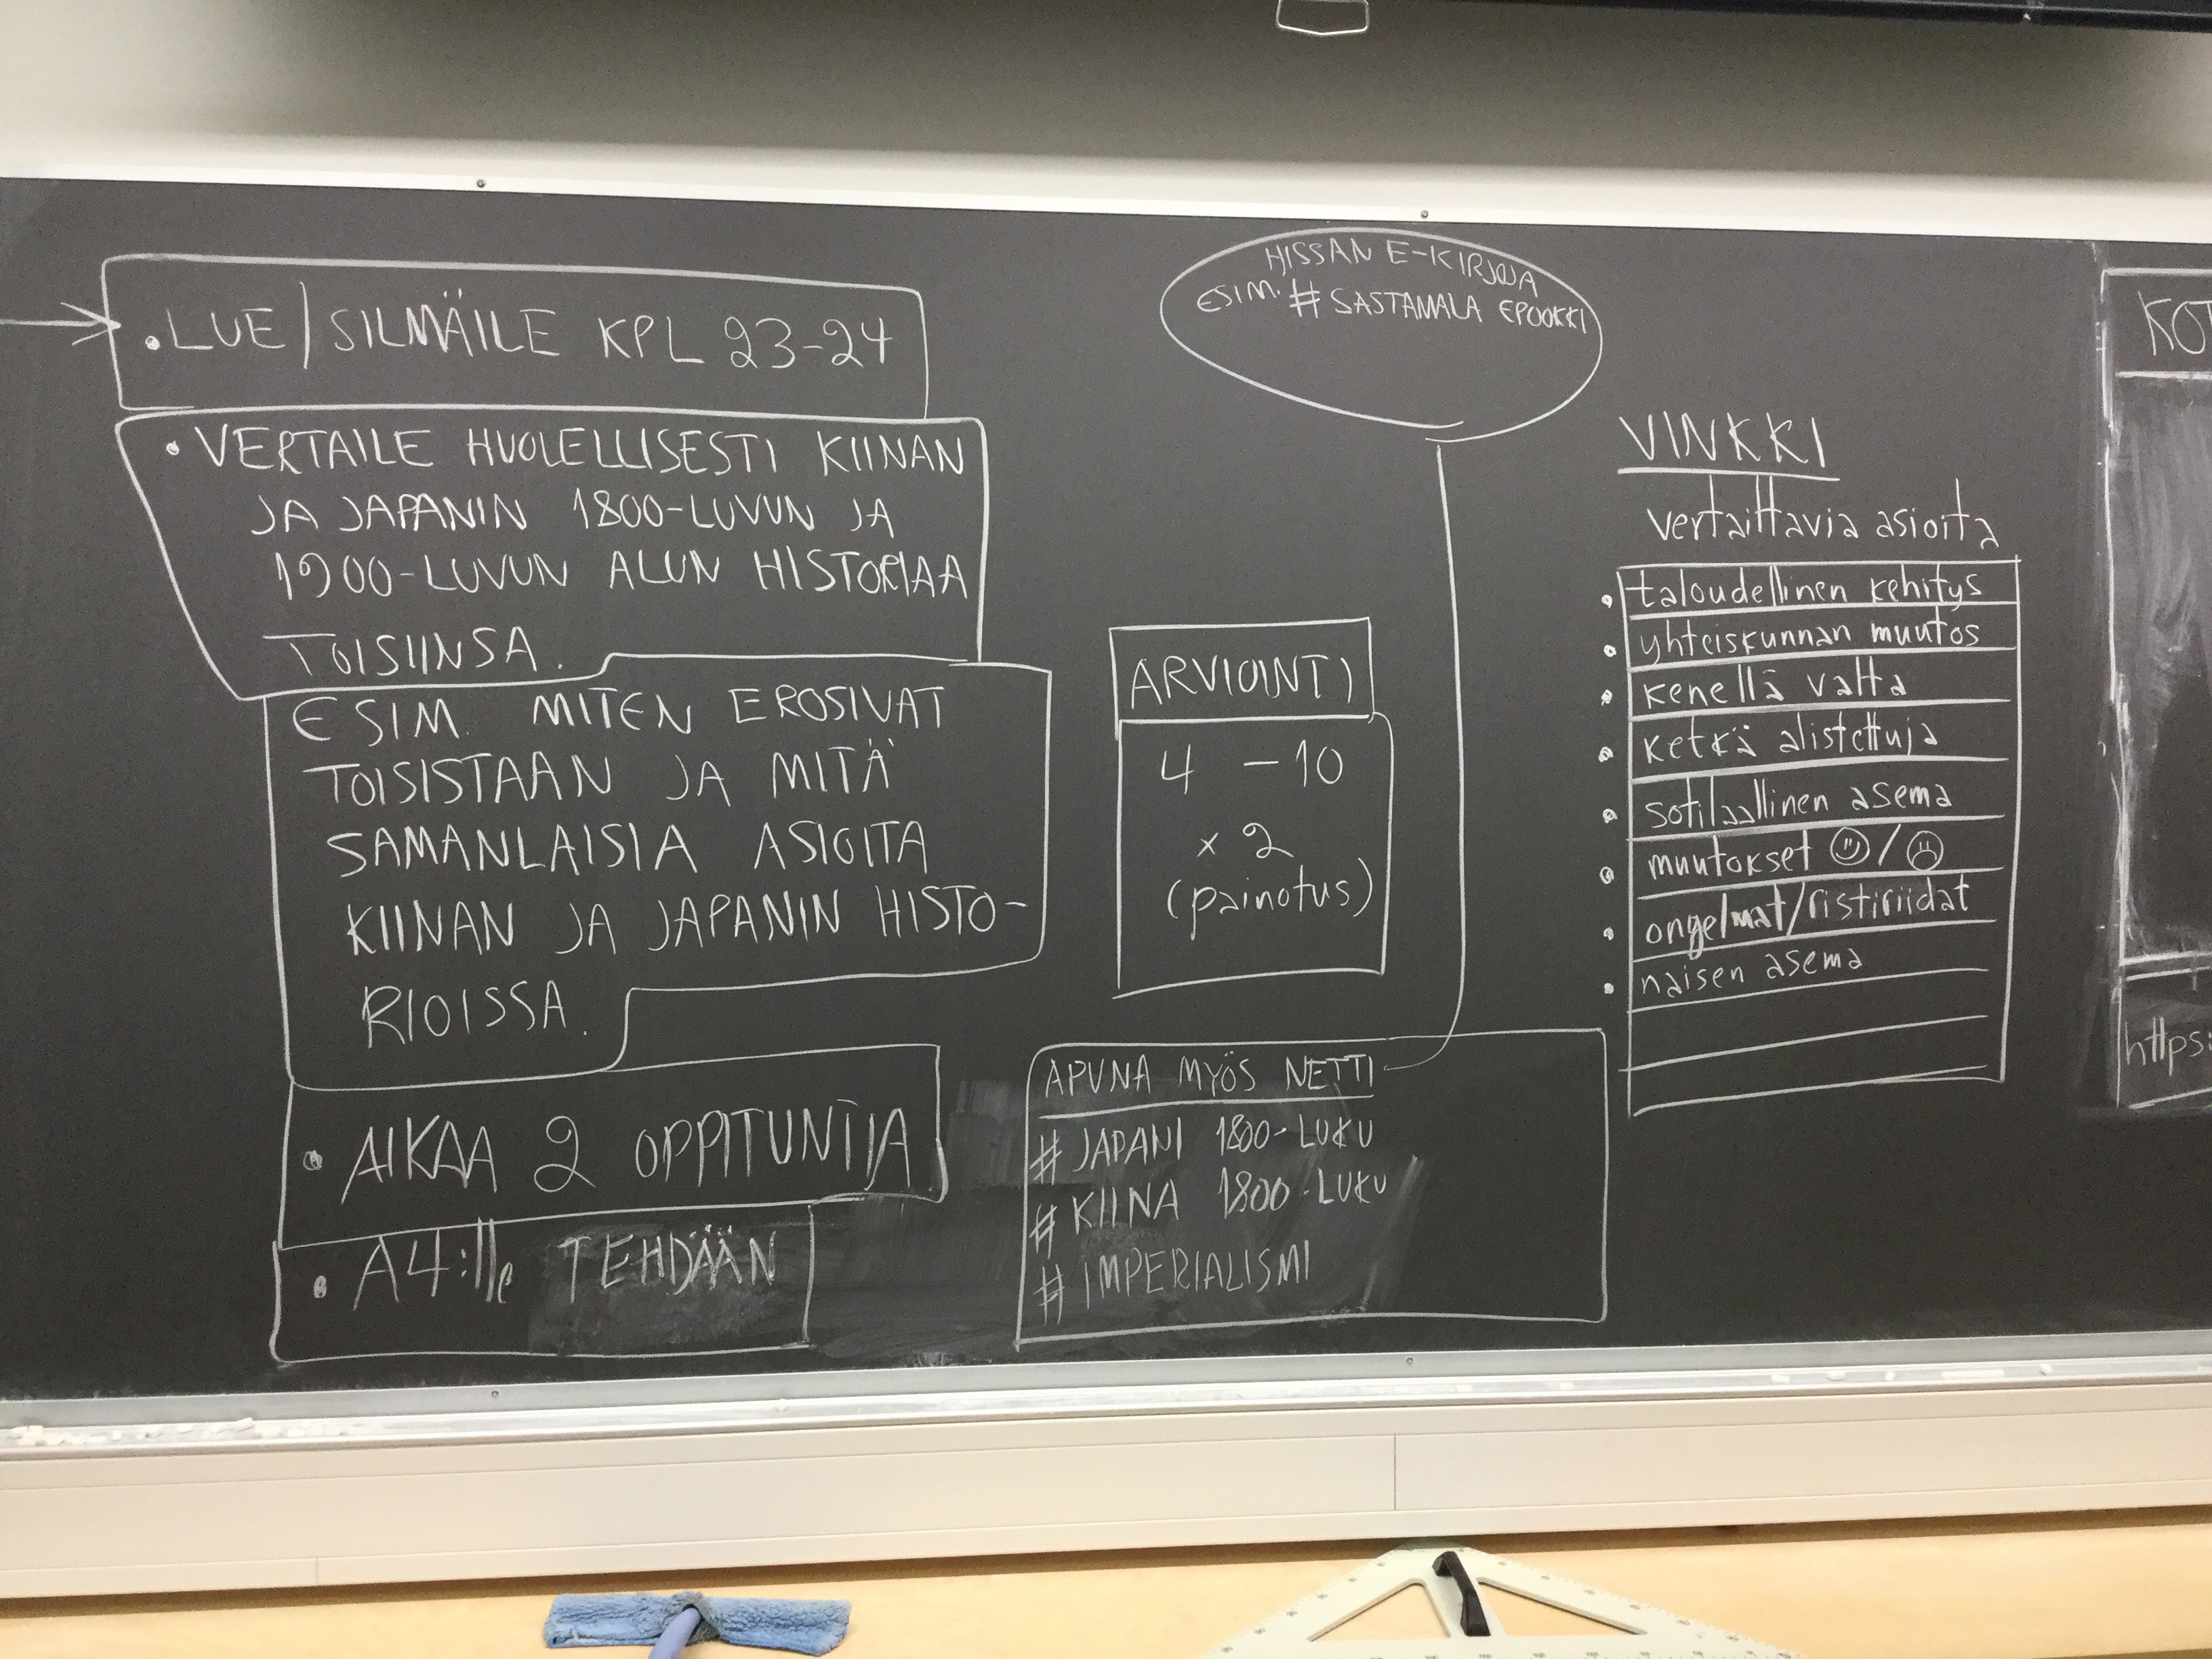 • LUE / SILMÄILE KPL 23-24
• VERTAILE HUOLELLISESTI KIINAN
JA JAPANIN 1800-LUVUN JA
1900-LUVUN ALUN HISTORIAA
TOISIINSA.
ESIM. MITEN EROSIVAT
TOISISTAAN JA MITÄ
SAMANLAISIA ASIOITA
KIINAN JA JAPANIN HISTO-
RIOISSA.
• AIKAA 2 OPPITUNTIA
• A4:lle TEHDÄÄN
HISSAN E-KIRJOJA
ESIM. # SASTAMALA EPOOKKI
ARVIOINTI
4 - 10
x 2
(painotus)
APUNA MYÖS NETTI
# JAPANI 1800-LUKU
# KIINA 1800-LUKU
# IMPERIALISMI
VINKKI
vertaittavia asioita
• taloudellinen kehitys
• yhteiskunnan muutos
• kenellä valta
• ketkä alistettuja
• sotilaallinen asema
• muutokset ☺/☹
• ongelmat/ristiriidat
• naisen asema
KOT
https: